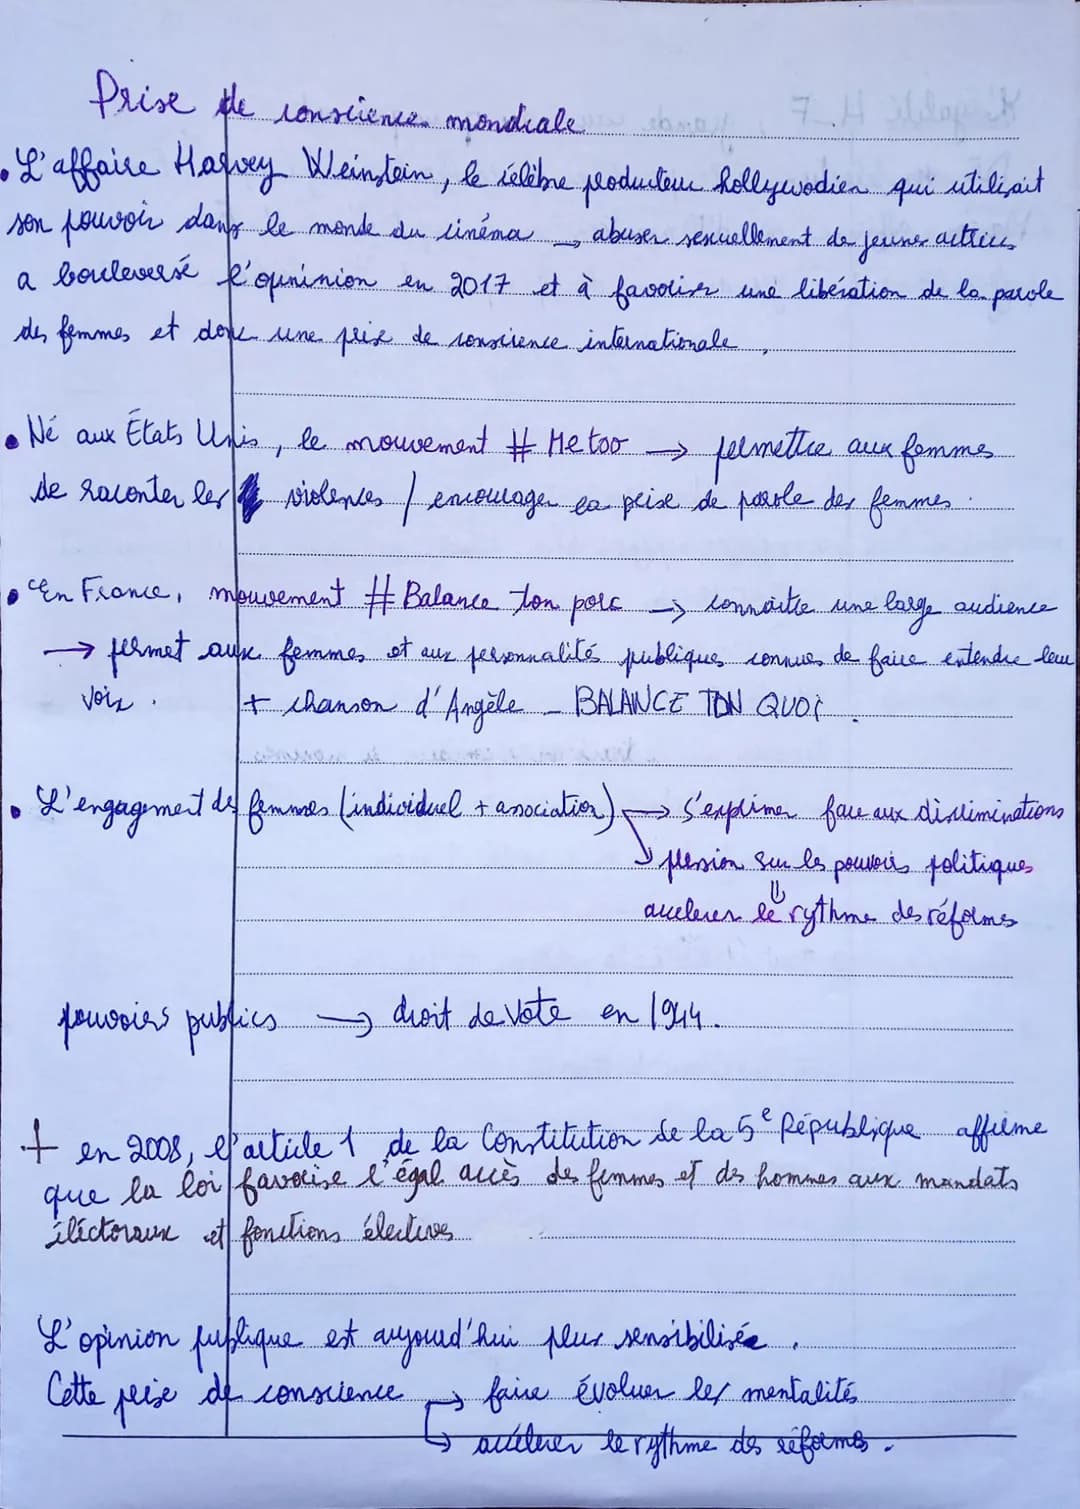 Prise de conscience mondiale
• L'affaire Harvey Weinstein, le célèbre producteur hollywodien qui utilisait
son pouvoir dans le monde du cinéma → abuser sexuellement de jeunes actrices
a bouleversé l'opninion en 2017 et à favoriser une libération de la parole
des femmes et donc une prise de conscience internationale.
• Né aux États Unis, le mouvement # Me too → permettre aux femmes
de raconter les violences / encourager la prise de parole des femmes.
• En France, mouvement # Balance ton porc → connaître une large audience
→ permet aux femmes et aux personnalités publiques connues de faire entendre leur
voix. + chanson d'Angèle - BALANCE TON QUOI.
• L'engagement des femmes (individuel + association) → s'exprimer face aux discriminations
↳ pression sur les pouvoirs politiques
⇓
accelerer le rythme des réformes
pouvoirs publics → droit de vote en 1944.
+ en 2008, l'article 1 de la Constitution de la 5e République affirme
que la loi favorise l'égal accès des femmes et des hommes aux mandats
éléctoraux et fonctions électives
L'opinion publique est aujourd'hui plus sensibilisée.
Cette prise de conscience → faire évoluer les mentalités
↳ accélerer le rythme des réformes.